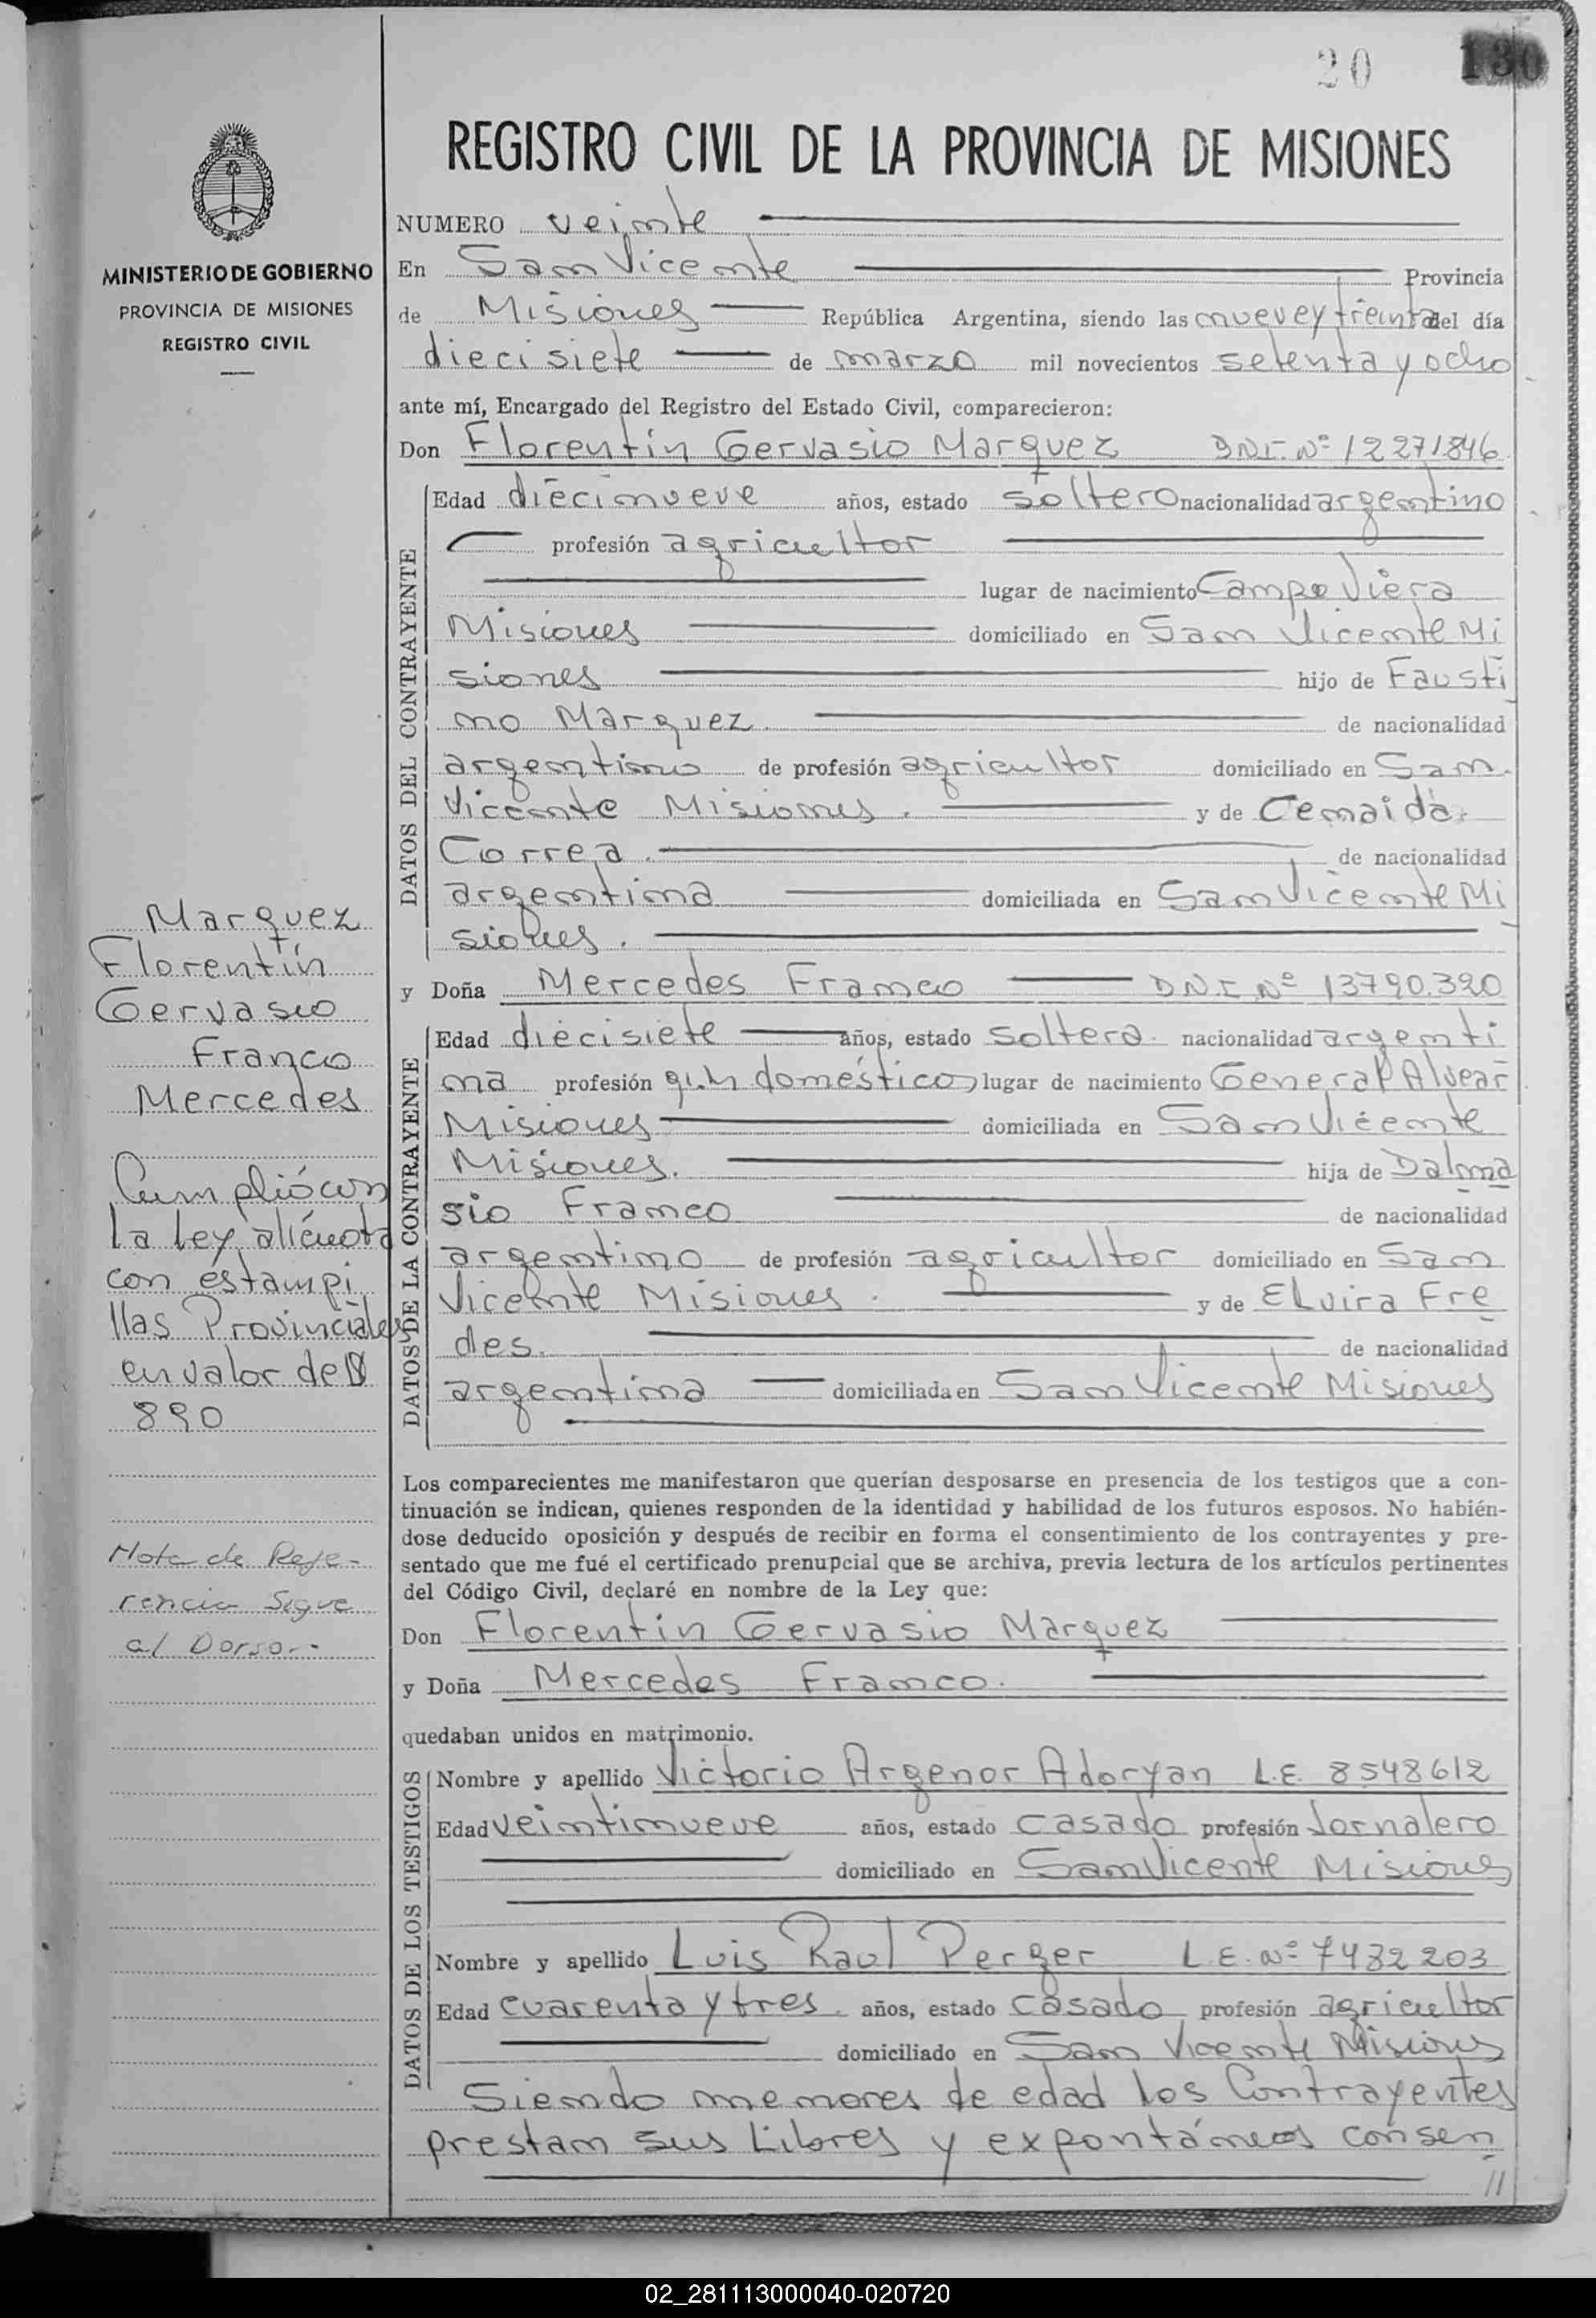 20 130
REGISTRO CIVIL DE LA PROVINCIA DE MISIONES
MINISTERIO DE GOBIERNO
PROVINCIA DE MISIONES
REGISTRO CIVIL
NUMERO veinte
En San Vicente Provincia
de Misiones República Argentina, siendo las nueve y treinta del día
diecisiete de marzo mil novecientos setenta y ocho
ante mí, Encargado del Registro del Estado Civil, comparecieron:
Don Florentín Gervasio Marquez DNI. Nº 12271846
DATOS DEL CONTRAYENTE
Edad diecinueve años, estado soltero nacionalidad argentino
profesión agricultor
lugar de nacimiento Campo Viera
Misiones domiciliado en San Vicente Mi
siones hijo de Fausti
no Marquez de nacionalidad
argentino de profesión agricultor domiciliado en San
Vicente Misiones. y de Cenaida
Correa. de nacionalidad
argentina domiciliada en San Vicente Mi
siones.
y Doña Mercedes Franco D.N.I. Nº 13790.320
DATOS DE LA CONTRAYENTE
Edad diecisiete años, estado soltera nacionalidad argenti
na profesión q.h. domésticos lugar de nacimiento General Alvear
Misiones domiciliada en San Vicente
Misiones. hija de Dalma
sio Franco de nacionalidad
argentino de profesión agricultor domiciliado en San
Vicente Misiones. y de Elvira Fre
des. de nacionalidad
argentina domiciliada en San Vicente Misiones
Los comparecientes me manifestaron que querían desposarse en presencia de los testigos que a con-
tinuación se indican, quienes responden de la identidad y habilidad de los futuros esposos. No habién-
dose deducido oposición y después de recibir en forma el consentimiento de los contrayentes y pre-
sentado que me fué el certificado prenupcial que se archiva, previa lectura de los artículos pertinentes
del Código Civil, declaré en nombre de la Ley que:
Don Florentín Gervasio Marquez
y Doña Mercedes Franco.
quedaban unidos en matrimonio.
DATOS DE LOS TESTIGOS
Nombre y apellido Victorio Argenor Adoryan L.E. 8548612
Edad veintinueve años, estado casado profesión Jornalero
domiciliado en San Vicente Misiones
Nombre y apellido Luis Raul Perger L.E. Nº 7432203
Edad cuarenta y tres. años, estado casado profesión agricultor
domiciliado en San Vicente Misiones
Siendo menores de edad los Contrayentes
prestan sus Libres y expontáneos consen
//
Marquez
Florentín
Gervasio
Franco
Mercedes
Cumplió con
la Ley alícuota
con estampi
llas Provinciales
en valor de $
890
Nota de Refe-
rencia Sigue
al Dorso.-
02_281113000040-020720